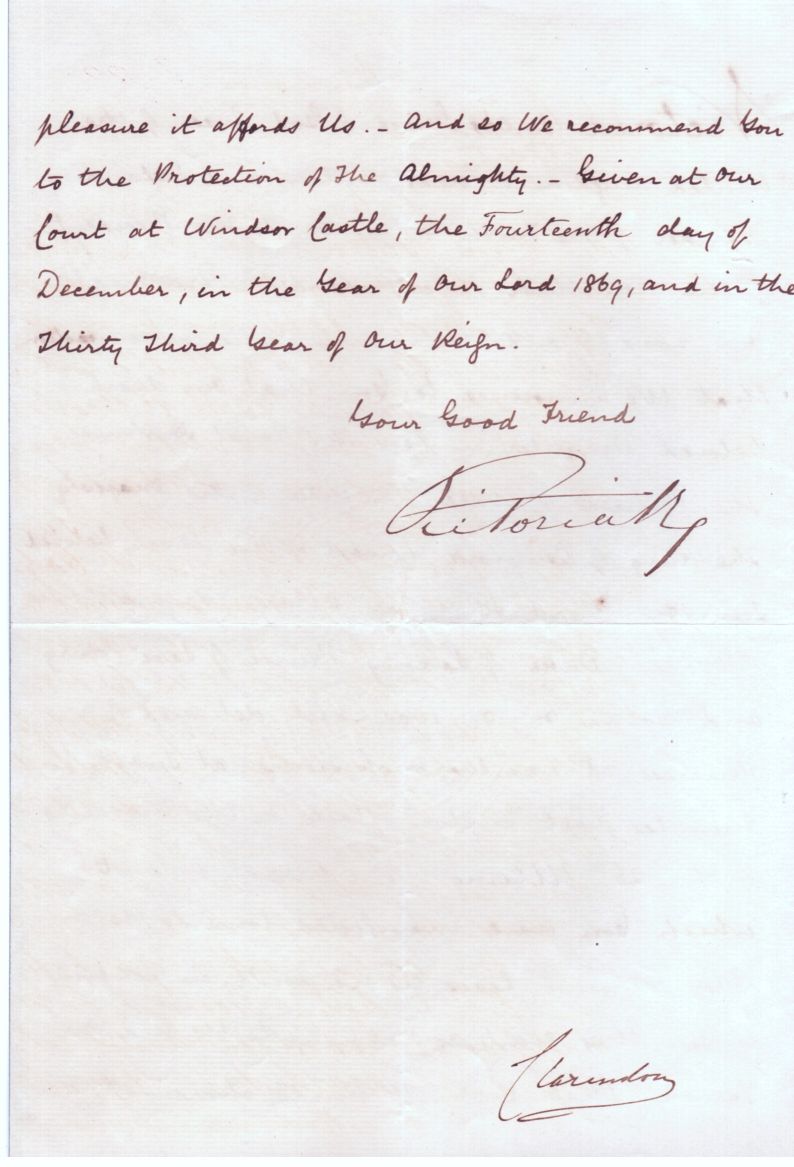 pleasure it affords Us. – And so We recommend You
to the Protection of The Almighty. – Given at Our
Court at Windsor Castle, the Fourteenth day of
December, in the Year of Our Lord 1869, and in the
Thirty Third Year of Our Reign.
Your Good Friend
Victoria R
Clarendon